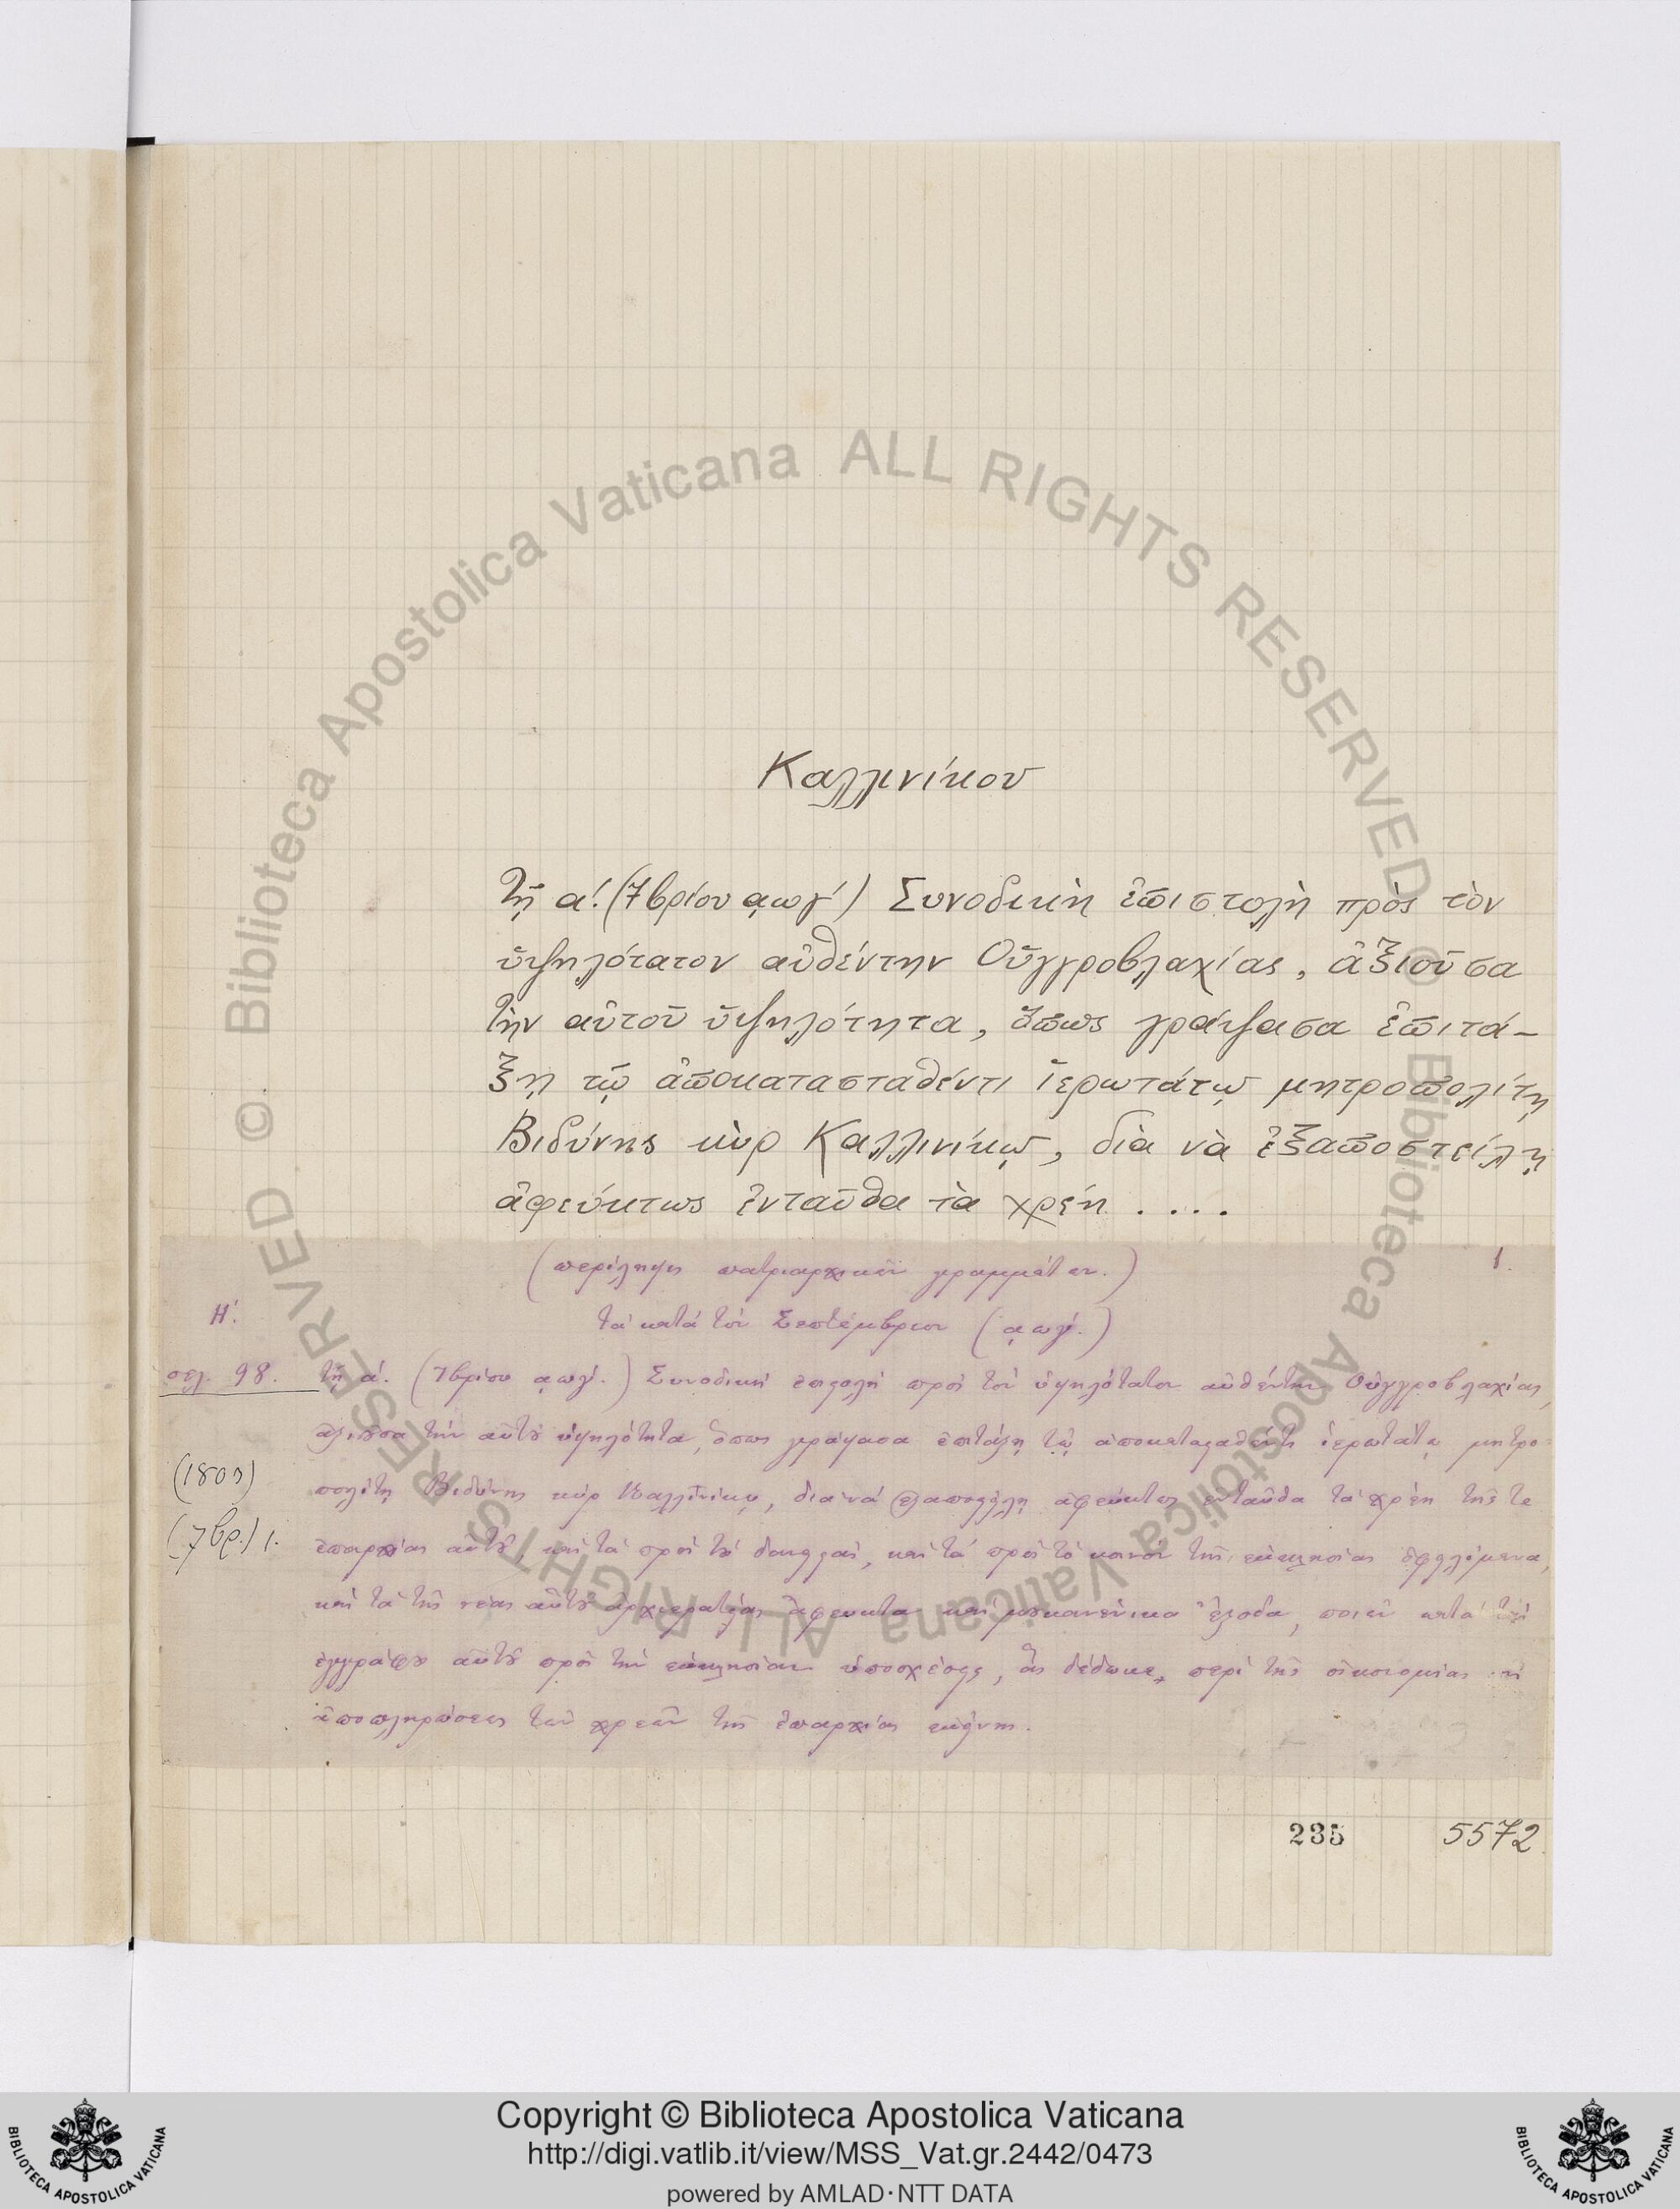 Καλλινίκου
Τῇ α΄. (7βρίου ͵αωγ΄) Συνοδικὴ ἐπιστολὴ πρὸς τὸν
ὑψηλότατον αὐθέντην Οὐγγροβλαχίας, ἀξιοῦσα
τὴν αὐτοῦ ὑψηλότητα, ὅπως γράψασα ἐπιτά-
ξῃ τῷ ἀποκατασταθέντι ἱερωτάτῳ μητροπολίτῃ
Βιδύνης κὺρ Καλλινίκῳ, διὰ νὰ ἐξαποστείλῃ
ἀφεύκτως ἐνταῦθα τὰ χρέη ....
(περίληψις πατριαρχικῶν γραμμάτων.) 1.
Η΄. τὰ κατὰ τὸν Σεπτέμβριον (͵αωγ΄.)
σελ. 98. τῇ α΄. (7βρίου ͵αωγ΄.) Συνοδικὴ ἐπιστολὴ πρὸς τὸν ὑψηλότατον αὐθέντην Οὐγγροβλαχίας,
ἀξιοῦσα τὴν αὐτοῦ ὑψηλότητα, ὅπως γράψασα ἐπιτάξῃ τῷ ἀποκατασταθέντι ἱερωτάτῳ μητρο-
(1803) πολίτῃ Βιδύνης κὺρ Καλλινίκῳ, διὰ νὰ ἐξαποστείλῃ ἀφεύκτως ἐνταῦθα τὰ χρέη τῆς τε
(7βρ.) 1. ἐπαρχίας αὐτοῦ, καὶ τὰ πρὸς τοὺς δανειστὰς, καὶ τὰ πρὸς τὸ κοινὸν τῆς ἐκκλησίας ὀφειλόμενα,
καὶ τὰ τῆς νέας αὐτοῦ ἀρχιερατείας ἄφευκτα καὶ ἔξοδα, ποιῶν κατὰ τὰς
ἐγγράφους αὐτοῦ πρὸς τὴν ἐκκλησίαν ὑποσχέσεις, ἃς δέδωκε, περὶ τῆς οἰκονομίας καὶ
ἀποπληρώσεως τῶν χρεῶν τῆς ἐπαρχίας ἐκείνης.
235 5572
Biblioteca Apostolica Vaticana ALL RIGHTS RESERVED ©
Biblioteca Apostolica Vaticana ALL RIGHTS RESERVED ©
Copyright © Biblioteca Apostolica Vaticana
http://digi.vatlib.it/view/MSS_Vat.gr.2442/0473
powered by AMLAD·NTT DATA
BIBLIOTECA APOSTOLICA VATICANA
BIBLIOTECA APOSTOLICA VATICANA